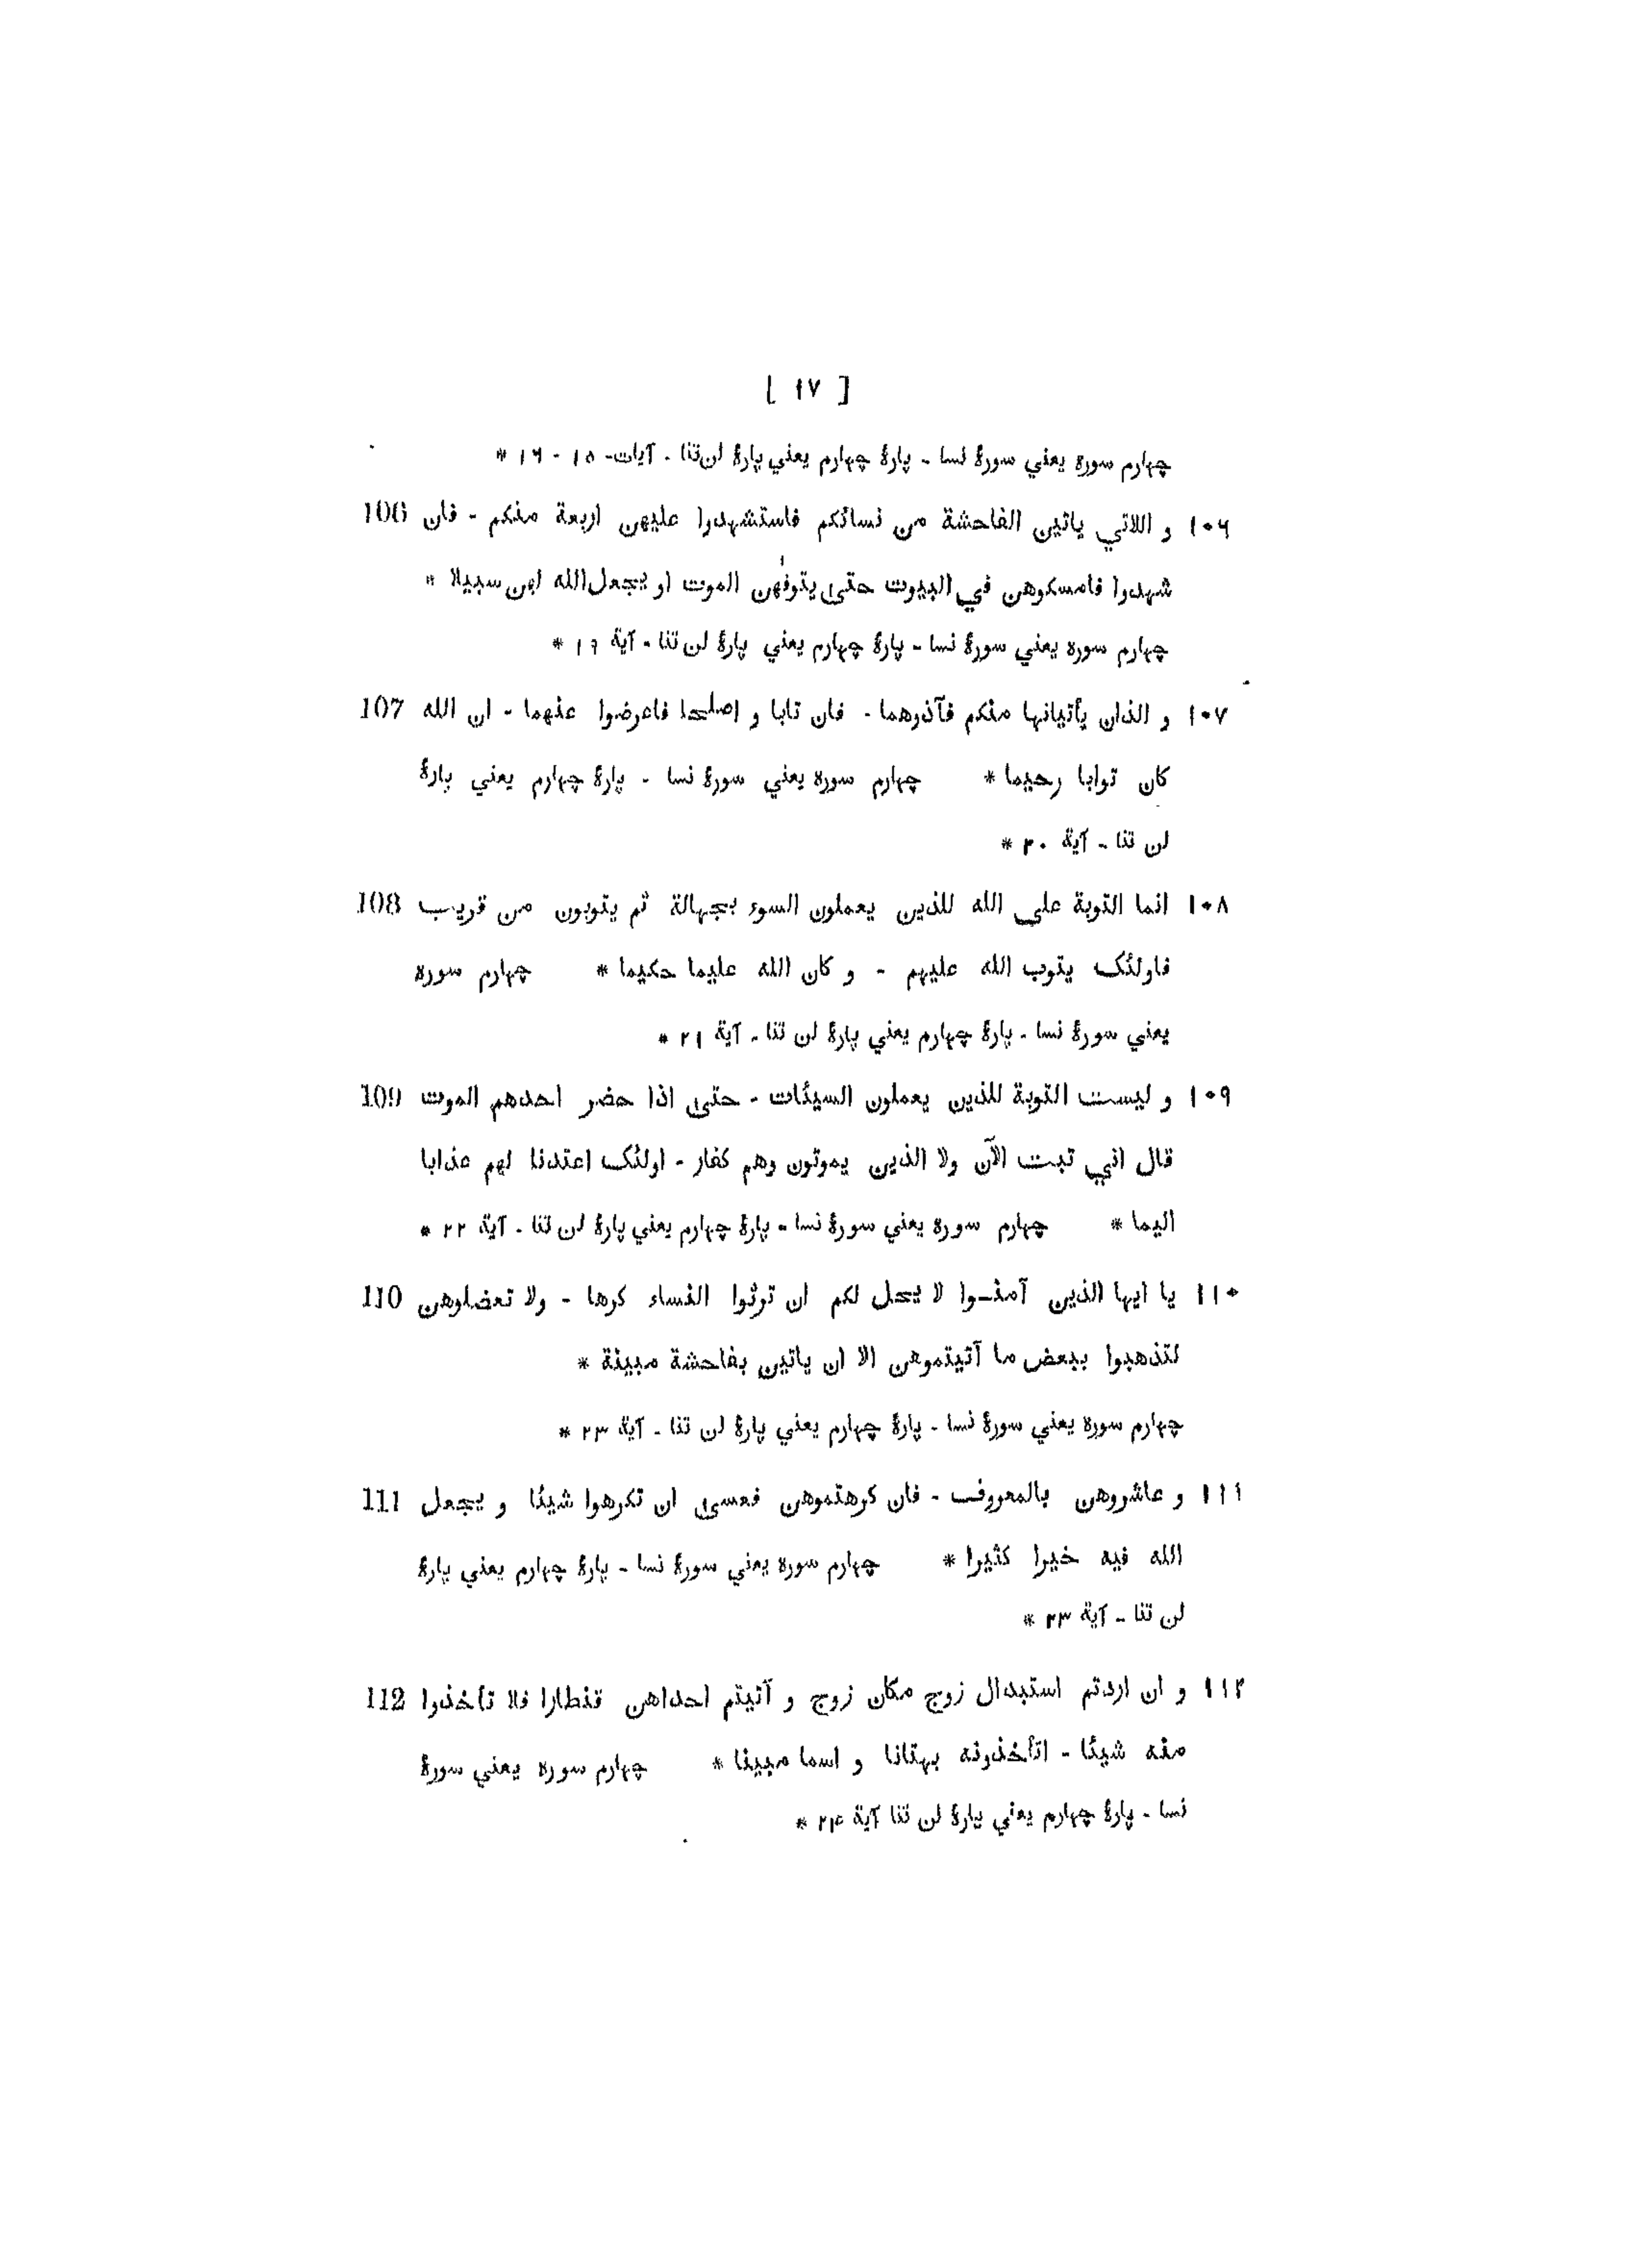 [ ١٧ ]
چهارم سوره يعني سورهٔ نسا - پارهٔ چهارم يعني پارهٔ لن تنا - آيات - ١٥ - ١٦ *
١٠٦ و اللاتي ياتين الفاحشة من نسائكم فاستشهدوا عليهن اربعة منكم - فان 106
شهدوا فامسكوهن في البيوت حتى يتوفٰهن الموت او يجعل الله لهن سبيلا *
چهارم سوره يعني سورهٔ نسا - پارهٔ چهارم يعني پارهٔ لن تنا - آية ١٩ *
١٠٧ و الذان يأتيانها منكم فآذوهما - فان تابا و اصلحا فاعرضوا عنهما - ان الله 107
كان توابا رحيما * چهارم سوره يعني سورهٔ نسا - پارهٔ چهارم يعني پارهٔ
لن تنا - آية ٢٠ *
١٠٨ انما التوبة على الله للذين يعملون السوء بجهالة ثم يتوبون من قريب 108
فاولئک يتوب الله عليهم - و كان الله عليما حكيما * چهارم سوره
يعني سورهٔ نسا - پارهٔ چهارم يعني پارهٔ لن تنا - آية ٢١ *
١٠٩ و ليست التوبة للذين يعملون السيئات - حتى اذا حضر احدهم الموت 109
قال اني تبت الآن ولا الذين يموتون وهم كفار - اولئک اعتدنا لهم عذابا
اليما * چهارم سوره يعني سورهٔ نسا - پارهٔ چهارم يعني پارهٔ لن تنا - آية ٢٢ *
١١٠ يا ايها الذين آمنــوا لا يحل لكم ان ترثوا النساء كرها - ولا تعضلوهن 110
لتذهبوا ببعض ما آتيتموهن الا ان ياتين بفاحشة مبينة *
چهارم سوره يعني سورهٔ نسا - پارهٔ چهارم يعني پارهٔ لن تنا - آية ٢٣ *
١١١ و عاشروهن بالمعروف - فان كرهتموهن فعسى ان تكرهوا شيئا و يجعل 111
الله فيه خيرا كثيرا * چهارم سوره يعني سورهٔ نسا - پارهٔ چهارم يعني پارهٔ
لن تنا - آية ٢٣ *
١١٢ و ان اردتم استبدال زوج مكان زوج و آتيتم احداهن قنطارا فلا تأخذوا 112
منه شيئا - اتأخذونه بهتانا و اسما مبينا * چهارم سوره يعني سورهٔ
نسا - پارهٔ چهارم يعني پارهٔ لن تنا آية ٢٤ *